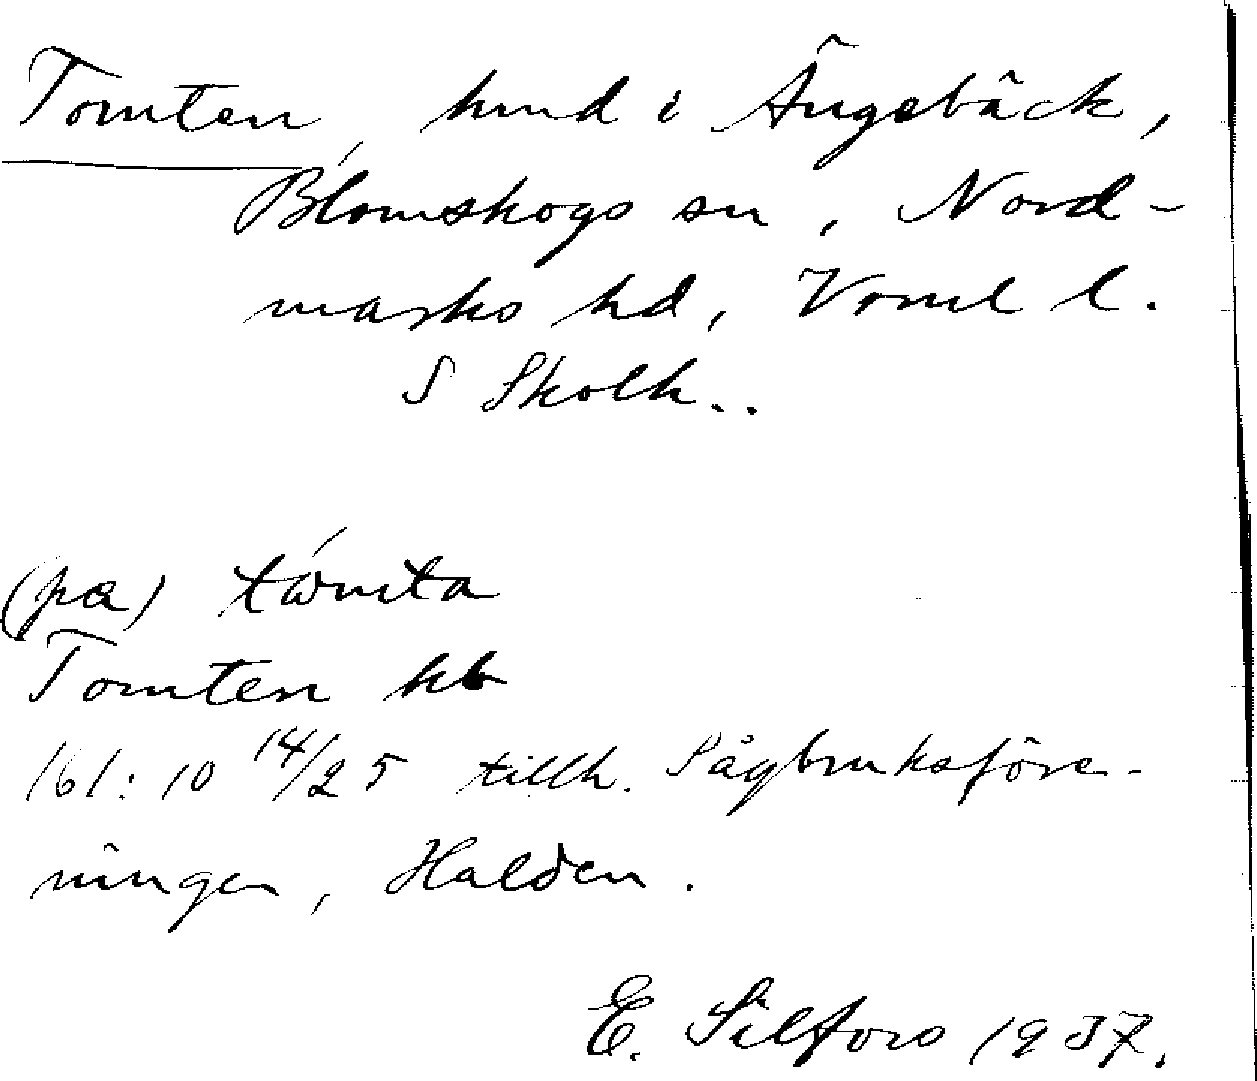 Tomten, hmd i Ängebäck,
Blomskogs sn, Nord-
marks hd, Vrml l.
S Skolh..
(pa) tómta
Tomten hb
161:10 14/25 tillh. Sågbruksföre-
ningen, Halden.
E. Silfors 1937.